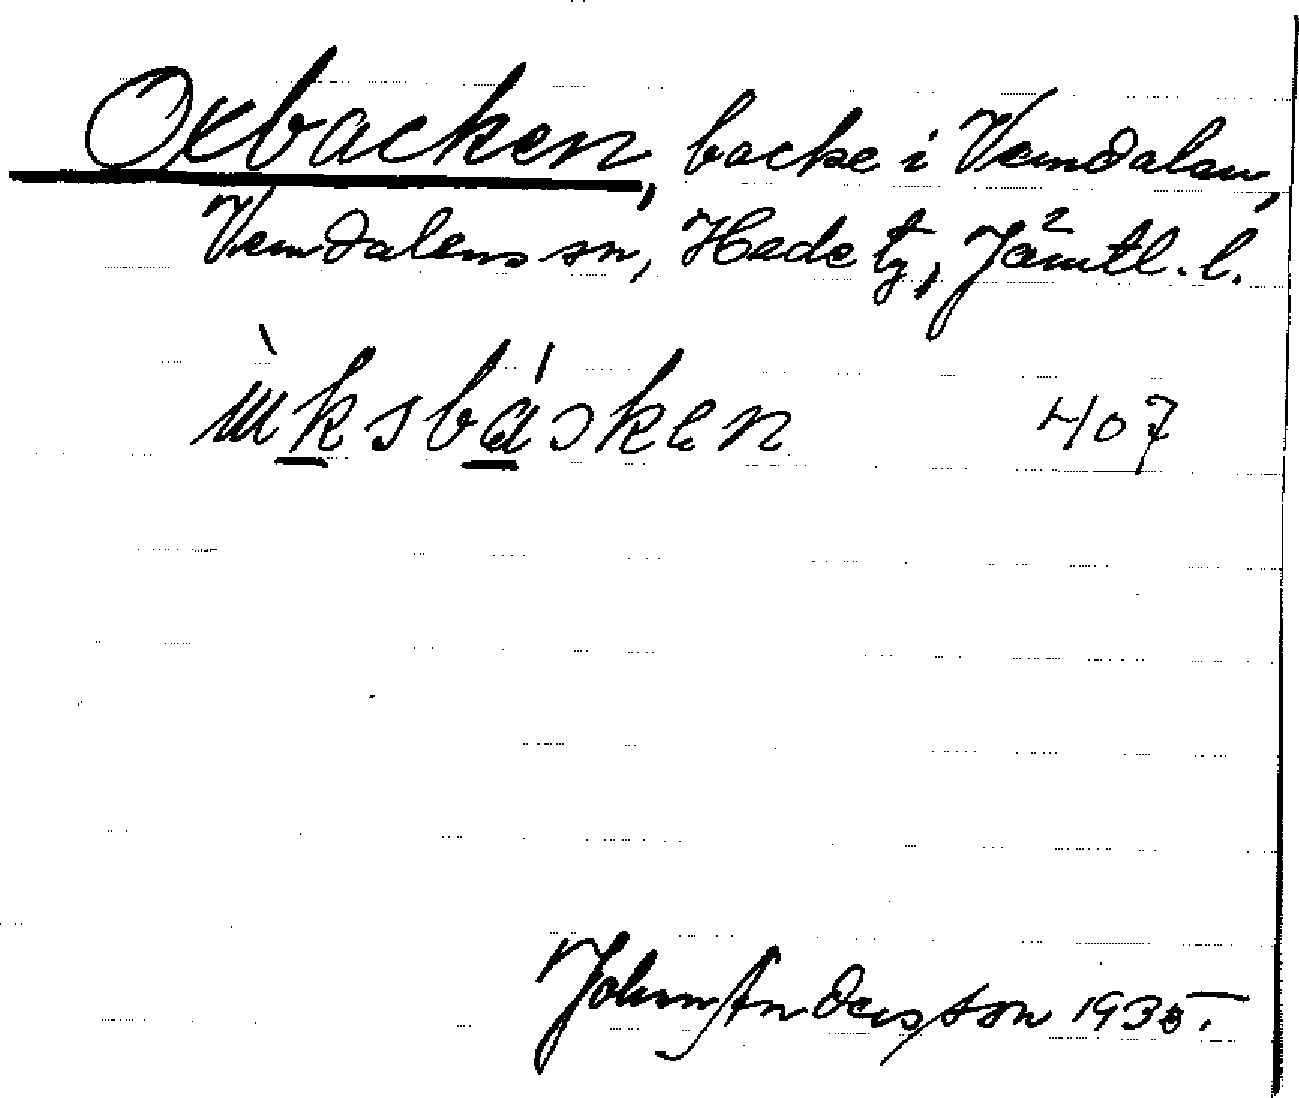 Oxbacken, backe i Vemdalen,
Vemdalens sn, Hede tg, Jämtl. l.
ùksbásken 407
John Andersson 1935.